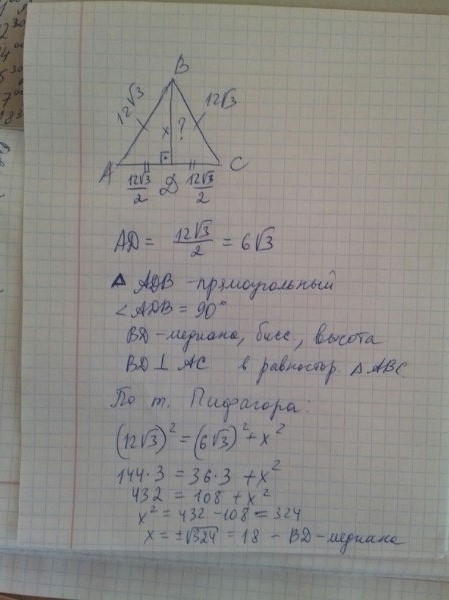 B
12√3
12√3
x ?
A
C
12√3/2 D 12√3/2
AD = 12√3/2 = 6√3
△ ADB - прямоугольный
∠ADB = 90°
BD - медиана, бисс., высота
BD ⊥ AC в равностор. △ ABC
По т. Пифагора:
(12√3)² = (6√3)² + x²
144·3 = 36·3 + x²
432 = 108 + x²
x² = 432 - 108 = 324
x = ±√324 = 18 - BD - медиана